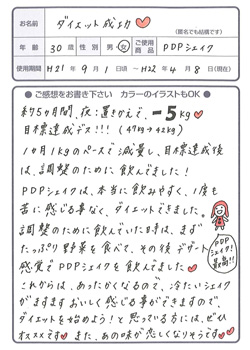 お名前 ダイエット成功♡
(匿名でも結構です)
年齢 30歳 性別 男・女 ご使用商品 PDPシェイク
使用期間 H21年9月1日頃 〜H22年4月8日(現在)
●ご感想をお書き下さい カラーのイラストもOK●
約5ヶ月間、夜:置きかえで、−5kg♡
目標達成デス!!! (47kg→42kg)
1ヶ月1kgのペースで減量し、目標達成後
は、調整のために飲んでました!
PDPシェイクは、本当に飲みやすく、1度も
苦に感じる事なく、ダイエットできました。
調整のために飲んでいた時は、まず
たっぷり野菜を食べて、その後デザート
感覚でPDPシェイクを飲んでました♡
PDPシェイク最高!!
これからは、あったかくなるので、冷たいシェイク
がますますおいしく感じる事ができますので、
ダイエットを始めよう!と思っている方には、ぜひ
オススメです♡また、あの味が恋しくなりそうです♡